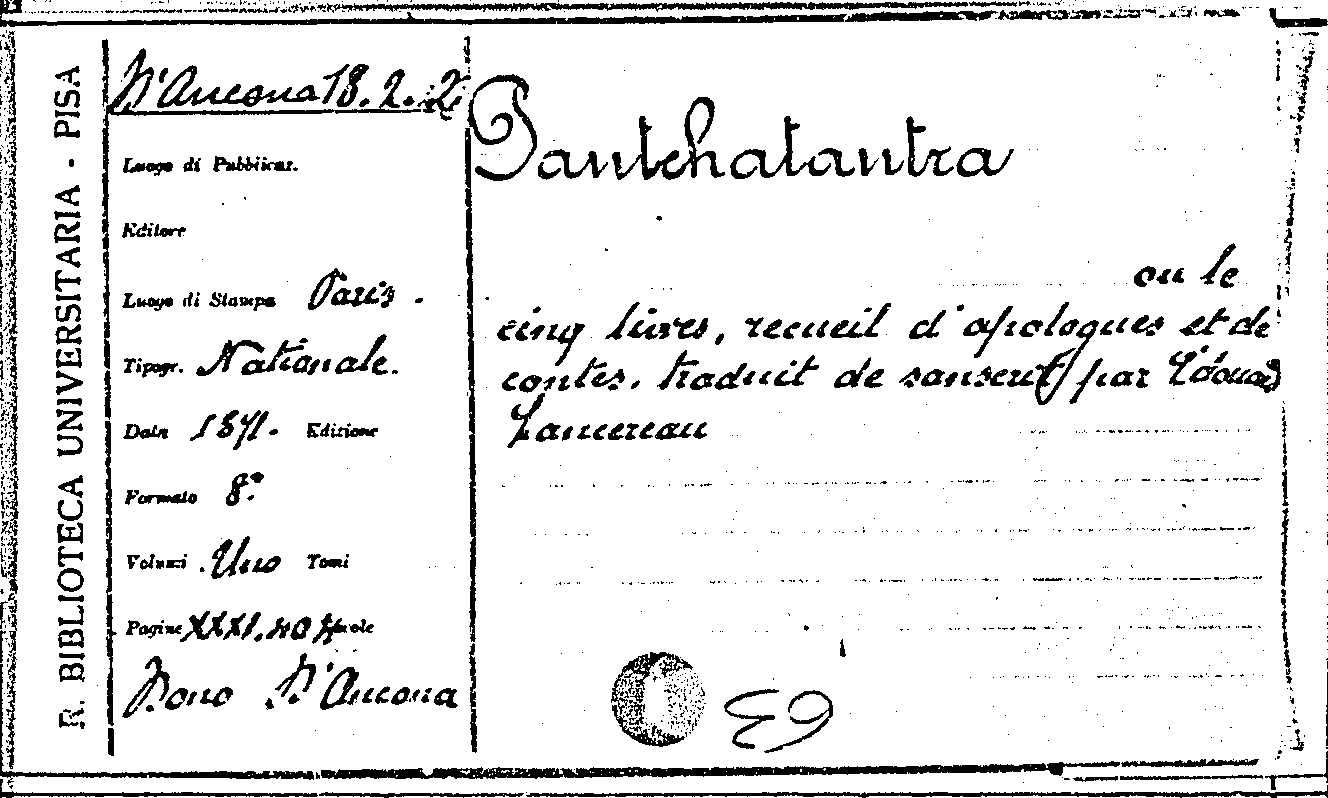 R. BIBLIOTECA UNIVERSITARIA - PISA
D'Ancona 18. 2. 2.
Luogo di Pubblicaz.
Editore
Luogo di Stampa Paris.
Tipogr. Nationale.
Data 1871. Edizione
Formato 8.°
Volumi Uno Tomi
Pagine XXXI, 404 Tavole
Dono D'Ancona
Pantchatantra
ou le
cinq livres, recueil d'apologues et de
contes. traduit de sanscrit par Édouard
Lancereau